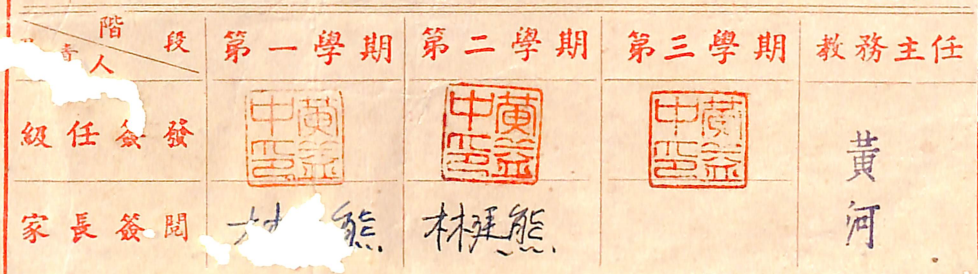 階段
人
第一學期 第二學期 第三學期 教務主任
級任簽發 黃益中印 黃益中印 黃益中印 黃河
家長簽閱 林 熊 林 熊